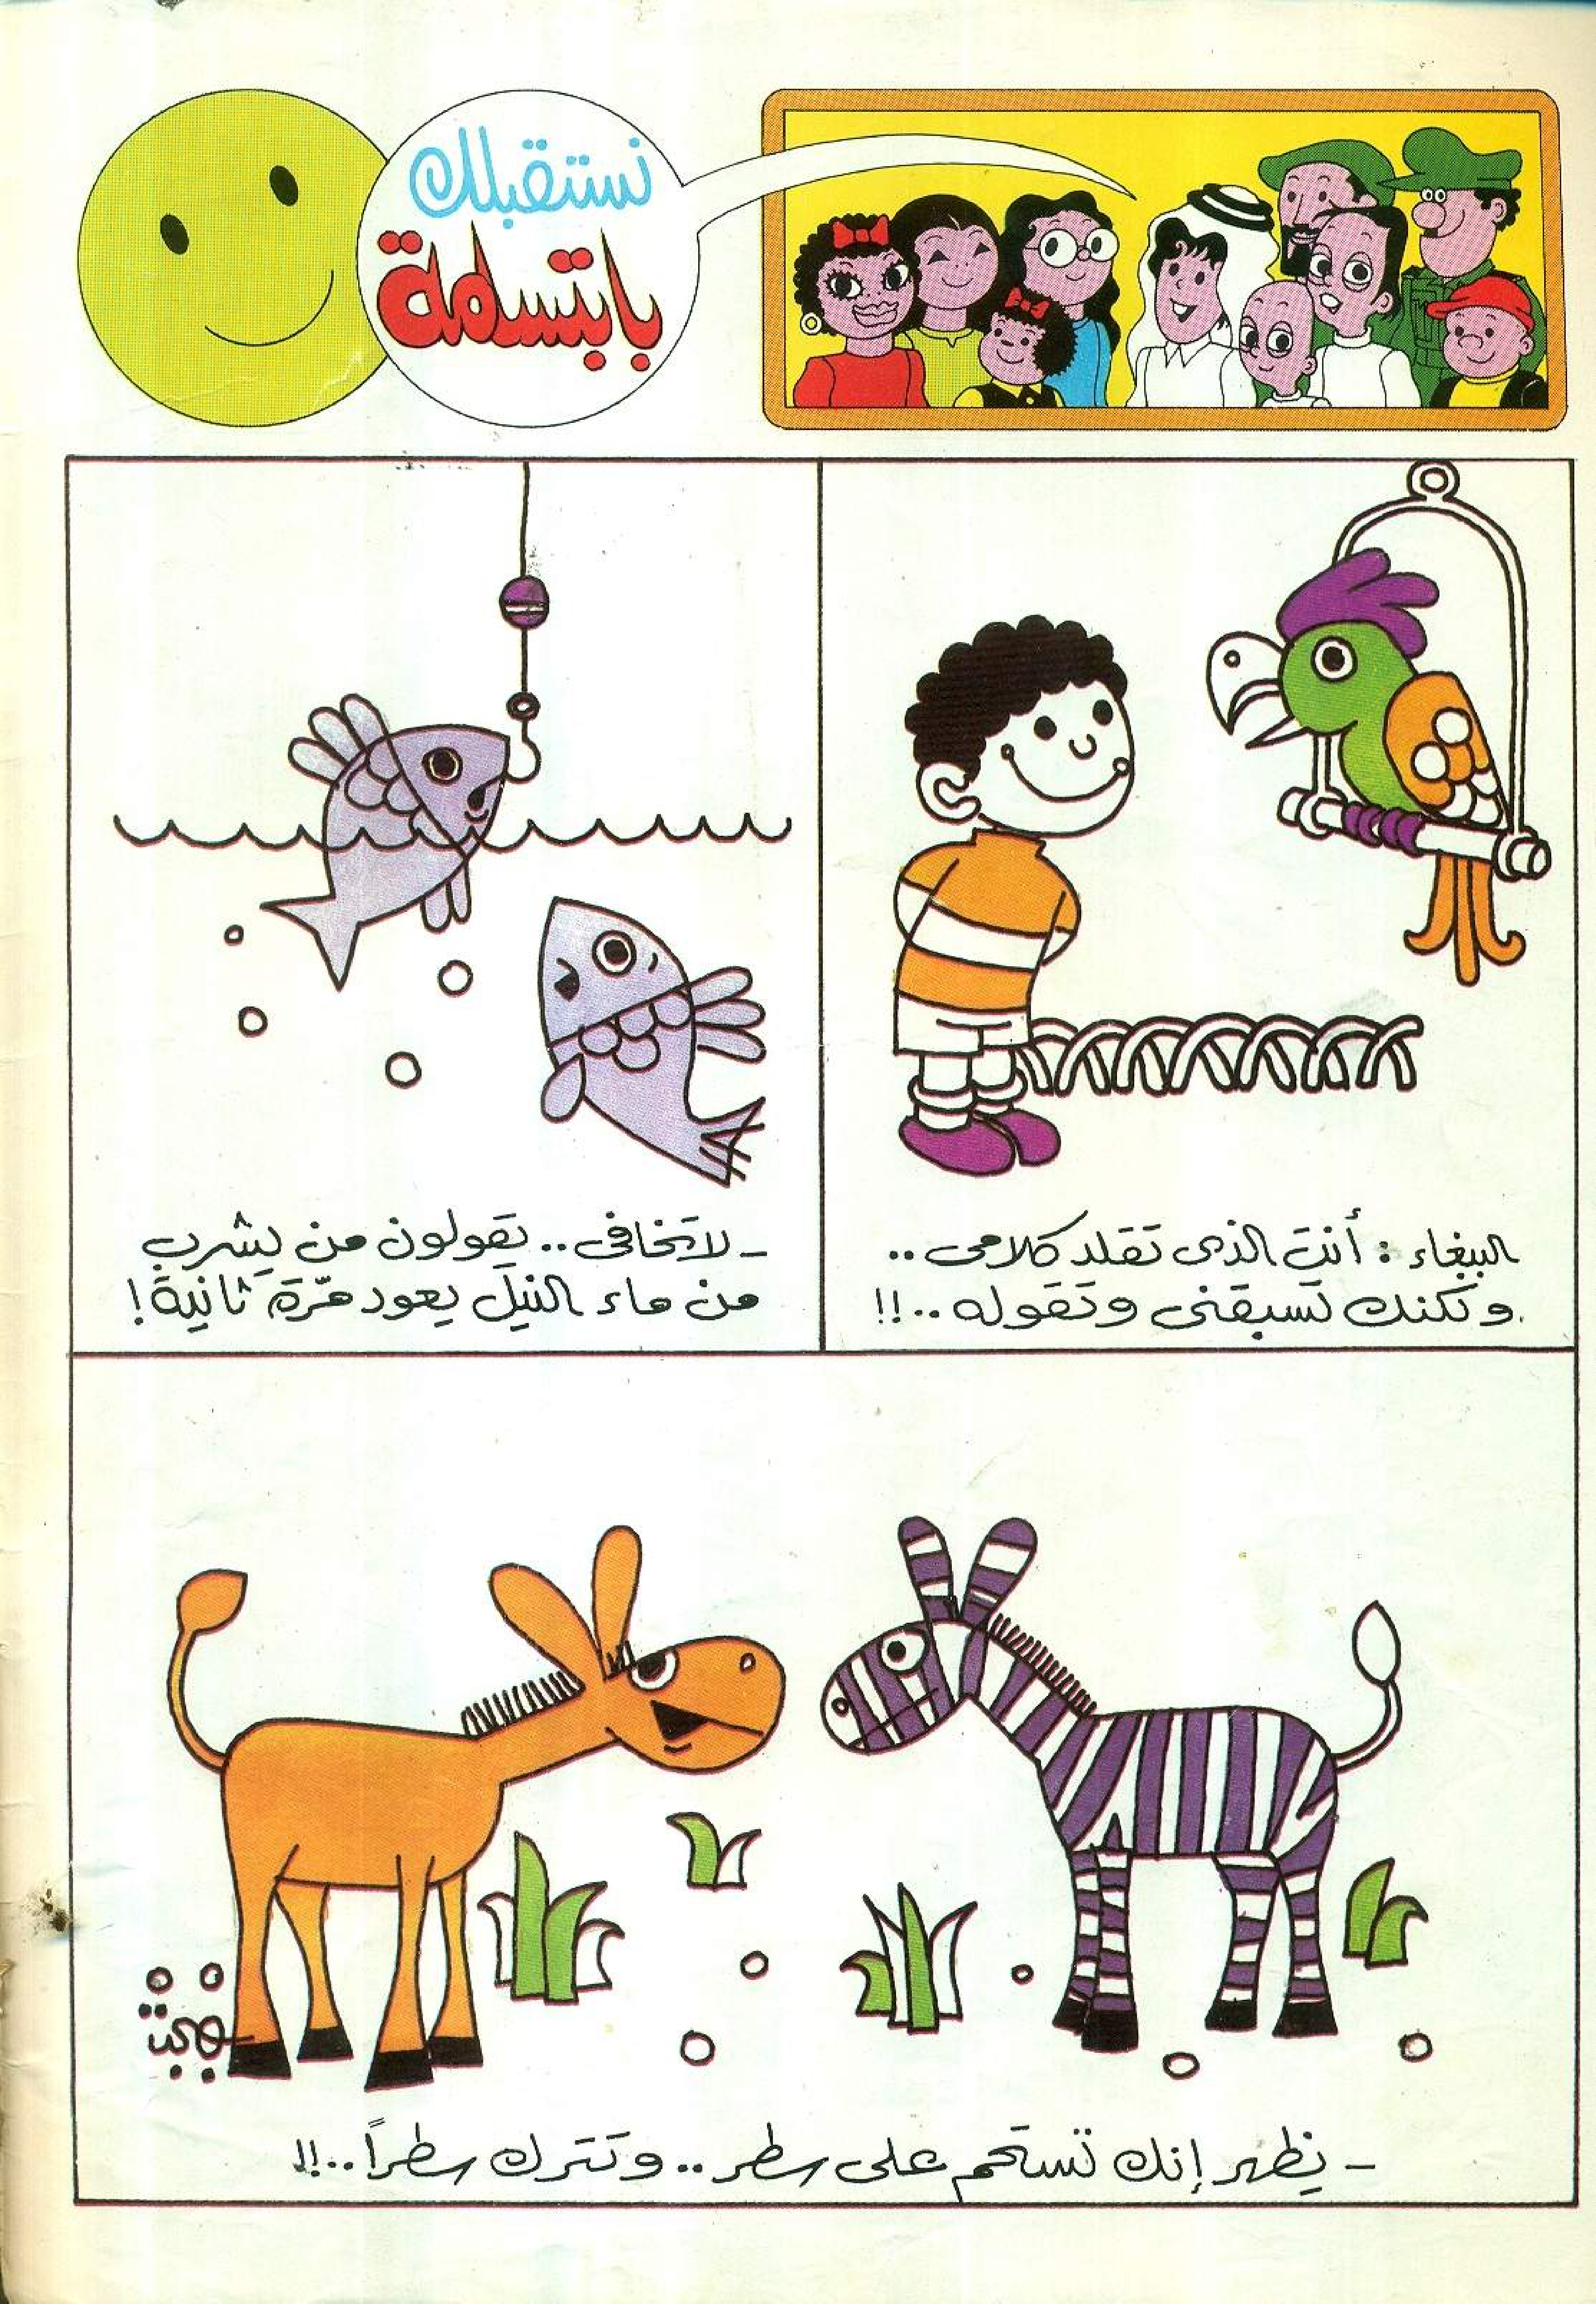 نستقبلك
بابتسامة
الببغاء : أنت الذى تقلد كلامى ..
ولكنك تسبقنى وتقوله ..!!
- لا تخافى .. يقولون من يشرب
من ماء النيل يعود مرّة ثانية !
- يظهر إنك تستحم على سطر .. وتترك سطراً ..!!